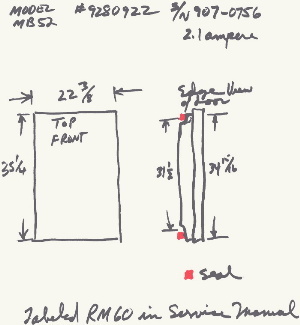 MODEL #9280922 S/N 907-0756
MB52
2.1 ampere
Edge View
of door
22 3/8
TOP
FRONT
35 1/4
31 1/2
34 15/16
seal
Labeled RM60 in Service Manual